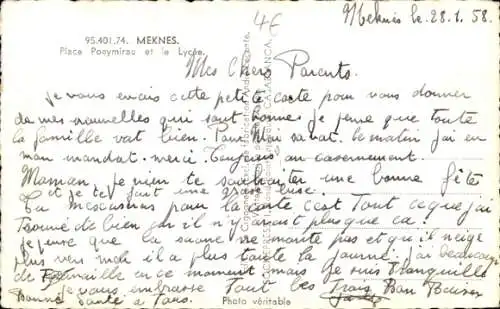 4€
Meknès le 28.1.58
95.401.74. MEKNES.
Place Poeymirau et le Lycée.
Mes Chers Parents.
je vous envois cette petite carte pour vous donner
de mes nouvelles qui sont bonnes je pense que toute
la famille vat bien. Pour Moi sa vat. le matin j'ai eu
mon mandat. merci. Toujours au casernement.
Maman je vien te souhaiter une bonne fête
et je te fait une grosse bise.
Tu mescuseras pour la carte c'est Tout ce que j'ai
Trouvé de bien car il n'y avait plus que ca!
je pense que la saone ne monte pas et qu'il neige
plus vers moi il a plus toute la journé. j'ai beaucoup
de Travaille en ce moment mais je suis Tranquille
je vous embrasse Tout les Trois Bon Baiser
Bonne Santé a Tous.
Photo véritable